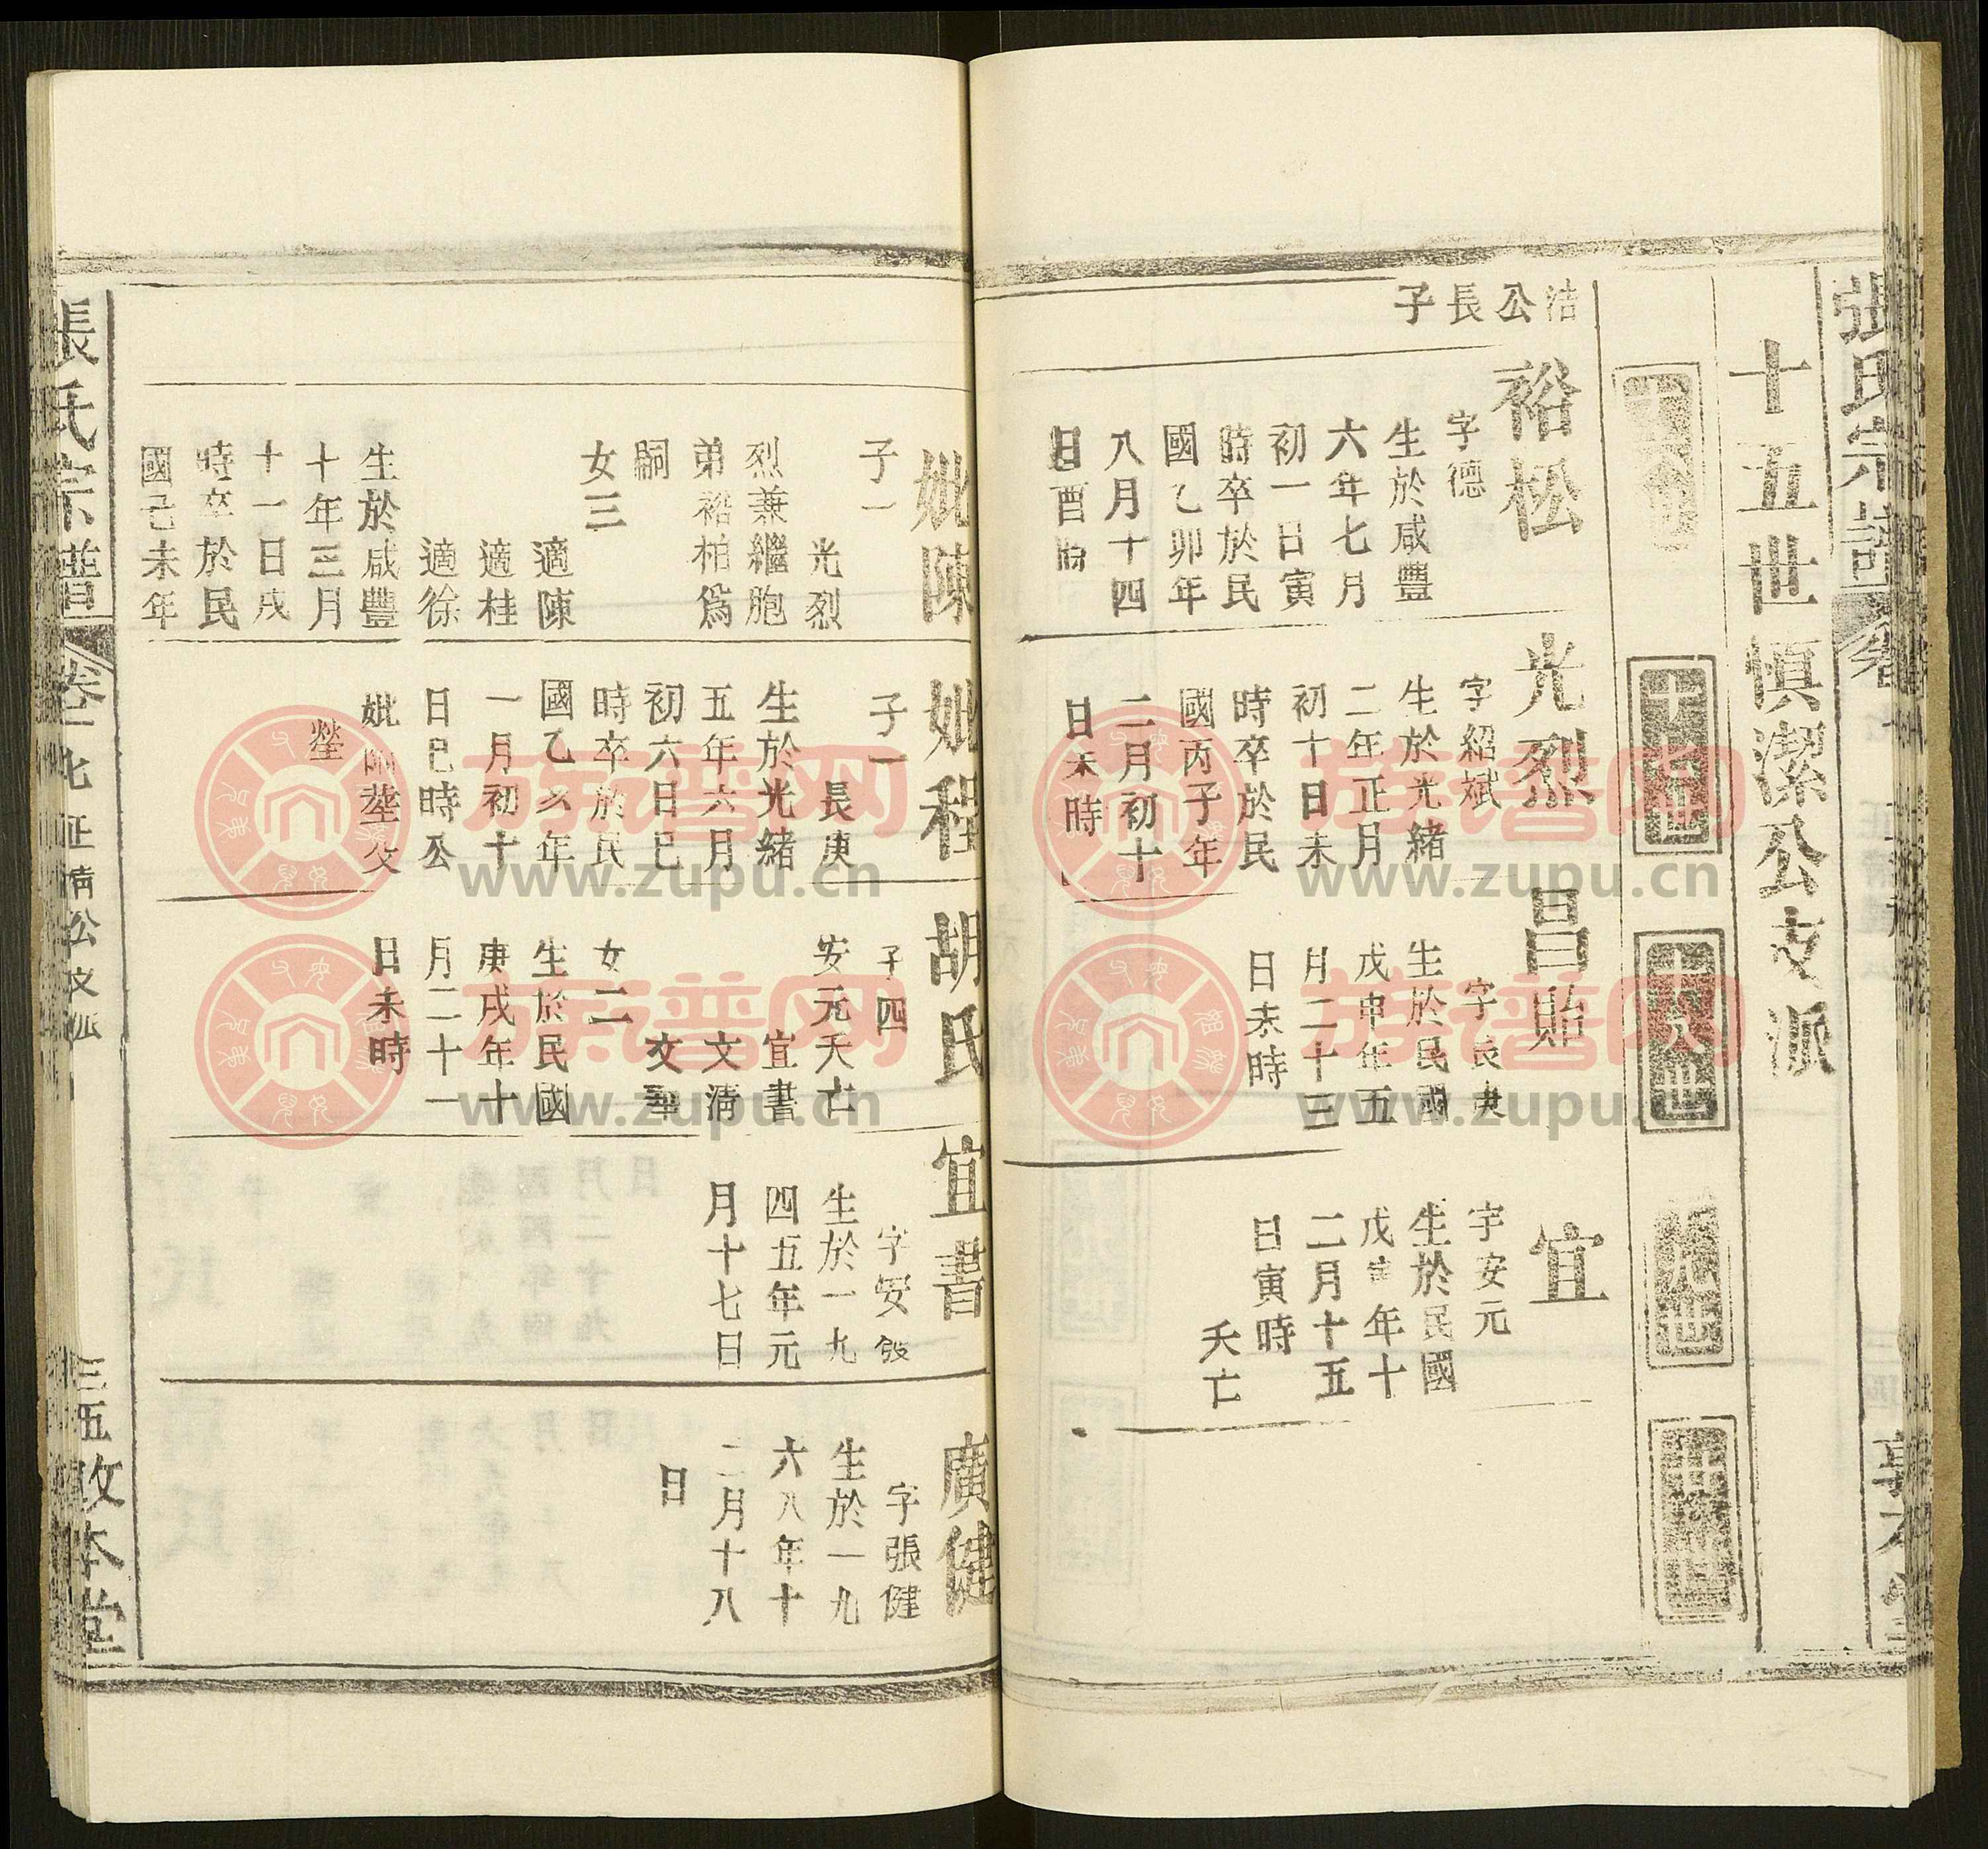 張氏宗譜
十五世慎潔公支派
洁公長子
裕松
字德
生於咸豐
六年七月
初一日寅
時卒於民
國乙卯年
八月十四
日酉時
光烈
字紹斌
生於光緒
二年正月
初十日未
時卒於民
國丙子年
二月初十
日未時
昌貽
字長庚
生於民國
戊申年五
月二十三
日未時
宜
字安元
生於民國
戊寅年十
二月十五
日寅時
夭亡
妣陳
子一
光烈
烈兼繼胞
弟裕柏爲
嗣
女三
適陳
適桂
適徐
生於咸豐
十年三月
十一日戌
時卒於民
國己未年
妣程
子一
長庚
生於光緒
五年六月
初六日巳
時卒於民
國乙亥年
一月初十
日巳時公
妣附塟父
塋
胡氏
子四
安元夭亡
宜書
文清
文華
女二
生於民國
庚戌年十
月二十一
日未時
宜書
字安
生於一九
四五年元
月十七日
廣健
字張健
生於一九
六八年十
二月十八
日
張氏宗譜
卷
正清公支派
三五敦本堂
族谱网
www.zupu.cn
族谱网
www.zupu.cn
族谱网
www.zupu.cn
族谱网
www.zupu.cn